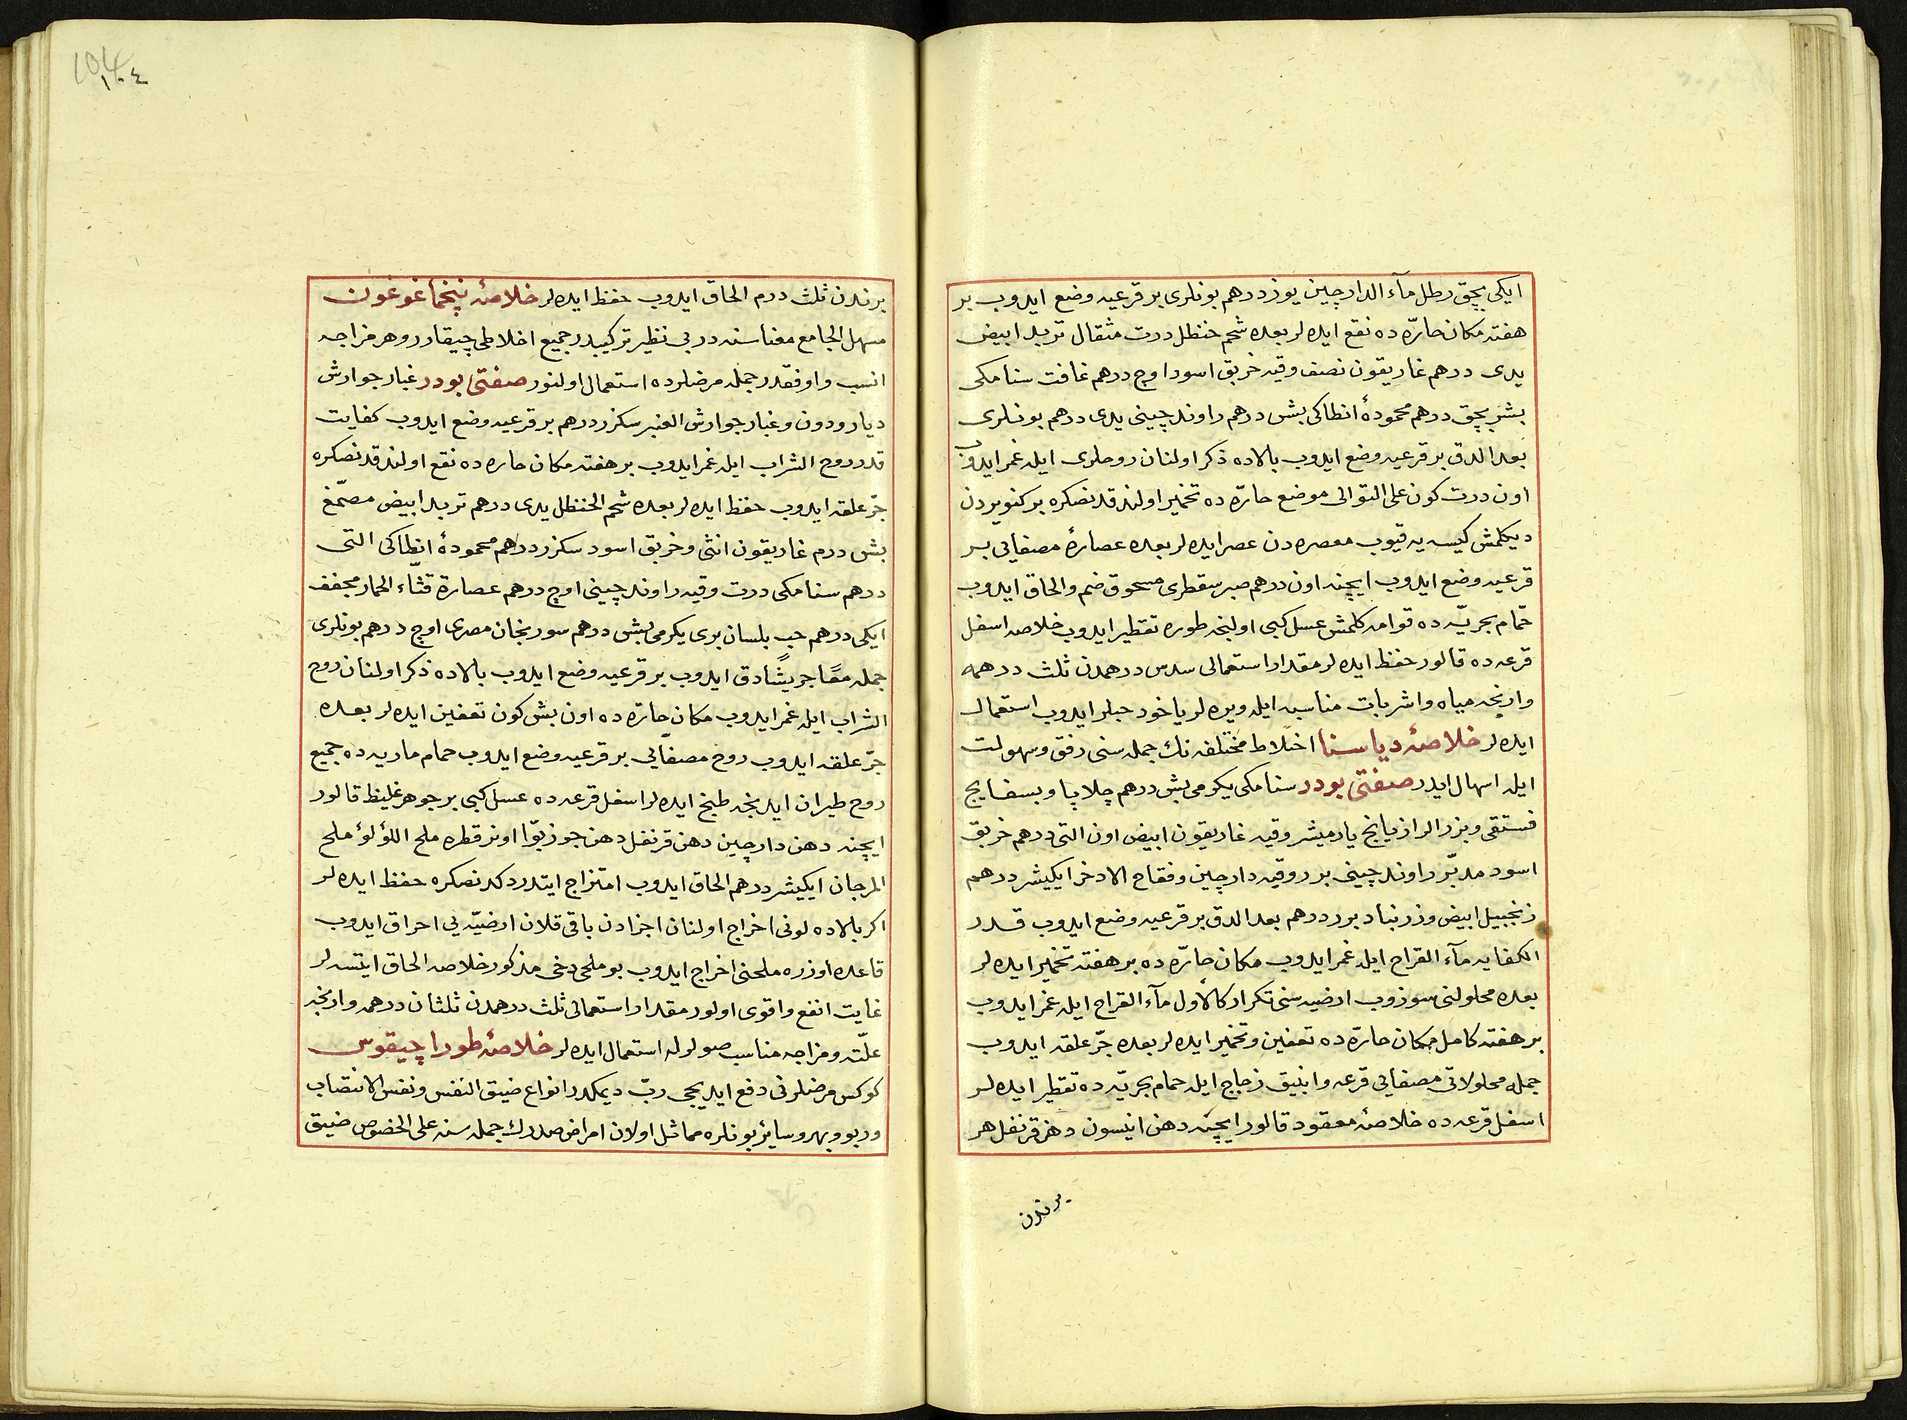 ایکی بچق رطل مآء الدارچین یوز درهم بونلری بر قرعیه وضع ایدوب بر
هفته مکان حارّه ده نقع ایده لر بعده شحم حنظل درت مثقال تربد ابیض
یدی درهم غاریقون نصف وقیه خربق اسود اوچ درهم غافت سنا مکی
بشر بچق درهم محمودهٔ انطاکی بش درهم راوند چینی یدی درهم بونلری
بعد الدق بر قرعیه وضع ایدوب بالاده ذکر اولنان روحلری ایله غمر ایدوب
اون درت کون علی التوالی موضع حارّه ده تخمیر اولندقدنصکره بر کنویردن
دیکلمش کیسه یه قیوب معصره دن عصر ایده لر بعده عصارهٔ مصفایی بر
قرعیه وضع ایدوب ایچنه اون درهم صبر سقطری مسحوق ضم والحاق ایدوب
حمّام بحریّه ده قوامه کلمش عسل کبی اولنجه طوره تقطیر ایدوب خلاصه اسفل
قرعه ده قالور حفظ ایده لر مقدار استعمالی سدس درهمدن ثلث درهمه
وارنجه میاه واشربات مناسبه ایله ویره لر یاخود حبلر ایدوب استعمال
ایده لر خلاصهٔ دیاسنا اخلاط مختلفه نك جمله سنی رفق وسهولت
ایله اسهال ایدر صفتی بودر سنا مکی یکرمی بش درهم چلاپا وبسفایج
فستقی وبزر الرازیانج یارمیشر وقیه غاریقون ابیض اون التی درهم خربق
اسود مدبّر راوند چینی برر وقیه دارچین وفقاح الادخر ایکیشر درهم
زنجبیل ابیض وزرنباد برر درهم بعد الدق بر قرعیه وضع ایدوب قدر
الکفایه مآء القراح ایله غمر ایدوب مکان حارّه ده بر هفته تخمیر ایده لر
بعده محلولنی سوزوب ارضیه سنی تکرار کالأول مآء القراح ایله غمر ایدوب
بر هفته کامل مکان حارّه ده تعفین وتخمیر ایده لر بعده جرّ علقه ایدوب
جمله محلولاتی مصفایی قرعه وانبیق زجاج ایله حمام بحریّه ده تقطیر ایده لر
اسفل قرعه ده خلاصهٔ معقود قالور ایچنه دهن انیسون دهن قرنفل هر
برندن
104
١٠٤
برندن ثلث درم الحاق ایدوب حفظ ایده لر خلاصهٔ پنخماغوغون
مسهل الجامع معناسنه در بی نظیر ترکیبدر جمیع اخلاطی چیقارر وهر مزاجه
انسب واوفقدر جمله مرضلرده استعمال اولنور صفتی بودر غبار جوارش
دیارودون وغبار جوارش العنبر سکزر درهم بر قرعیه وضع ایدوب کفایت
قدر روح الشراب ایله غمر ایدوب بر هفته مکان حاره ده نقع اولندقدنصکره
جرّ علقه ایدوب حفظ ایده لر بعده شحم الحنظل یدی درهم تربد ابیض مصمّغ
بش درم غاریقون انثی وخربق اسود سکزر درهم محمودهٔ انطاکی التی
درهم سنا مکی درت وقیه راوند چینی اوچ درهم عصارة قثّاء الحمار مجفف
ایکی درهم حب بلسان بری یکرمی بش درهم سورنجان مصری اوچ درهم بونلری
جمله معًا جریشًا دق ایدوب بر قرعیه وضع ایدوب بالاده ذکر اولنان روح
الشراب ایله غمر ایدوب مکان حارّه ده اون بش کون تعفین ایده لر بعده
جرّ علقه ایدوب روح مصفّایی بر قرعیه وضع ایدوب حمام ماریه ده جمیع
روح طیران ایدنجه طبخ ایده لر اسفل قرعه ده عسل کبی بر جوهر غلیظ قالور
ایچنه دهن دارچین دهن قرنفل دهن جوز بوّا اونر قطره ملح اللؤلؤ ملح
المرجان ایکیشر درهم الحاق ایدوب امتزاج ایتدردکدنصکره حفظ ایده لر
اکر بالاده لونی اخراج اولنان اجزادن باقی قلان ارضیّه یی احراق ایدوب
قاعده اوزره ملحنی اخراج ایدوب بو ملحی دخی مذکور خلاصه الحاق ایتسه لر
غایت انفع واقوی اولور مقدار استعمالی ثلث درهمدن ثلثان درهمه وارنجه
علّته ومزاجه مناسب صولرله استعمال ایده لر خلاصهٔ طوراچیقوس
کوکس مرضلرنی دفع ایدیجی ربّ دیمکدر انواع ضیق النفس ونفس الانتصاب
وربو وبهر وسایر بونلره مماثل اولان امراض صدرك جمله سنه علی الخصوص ضیق